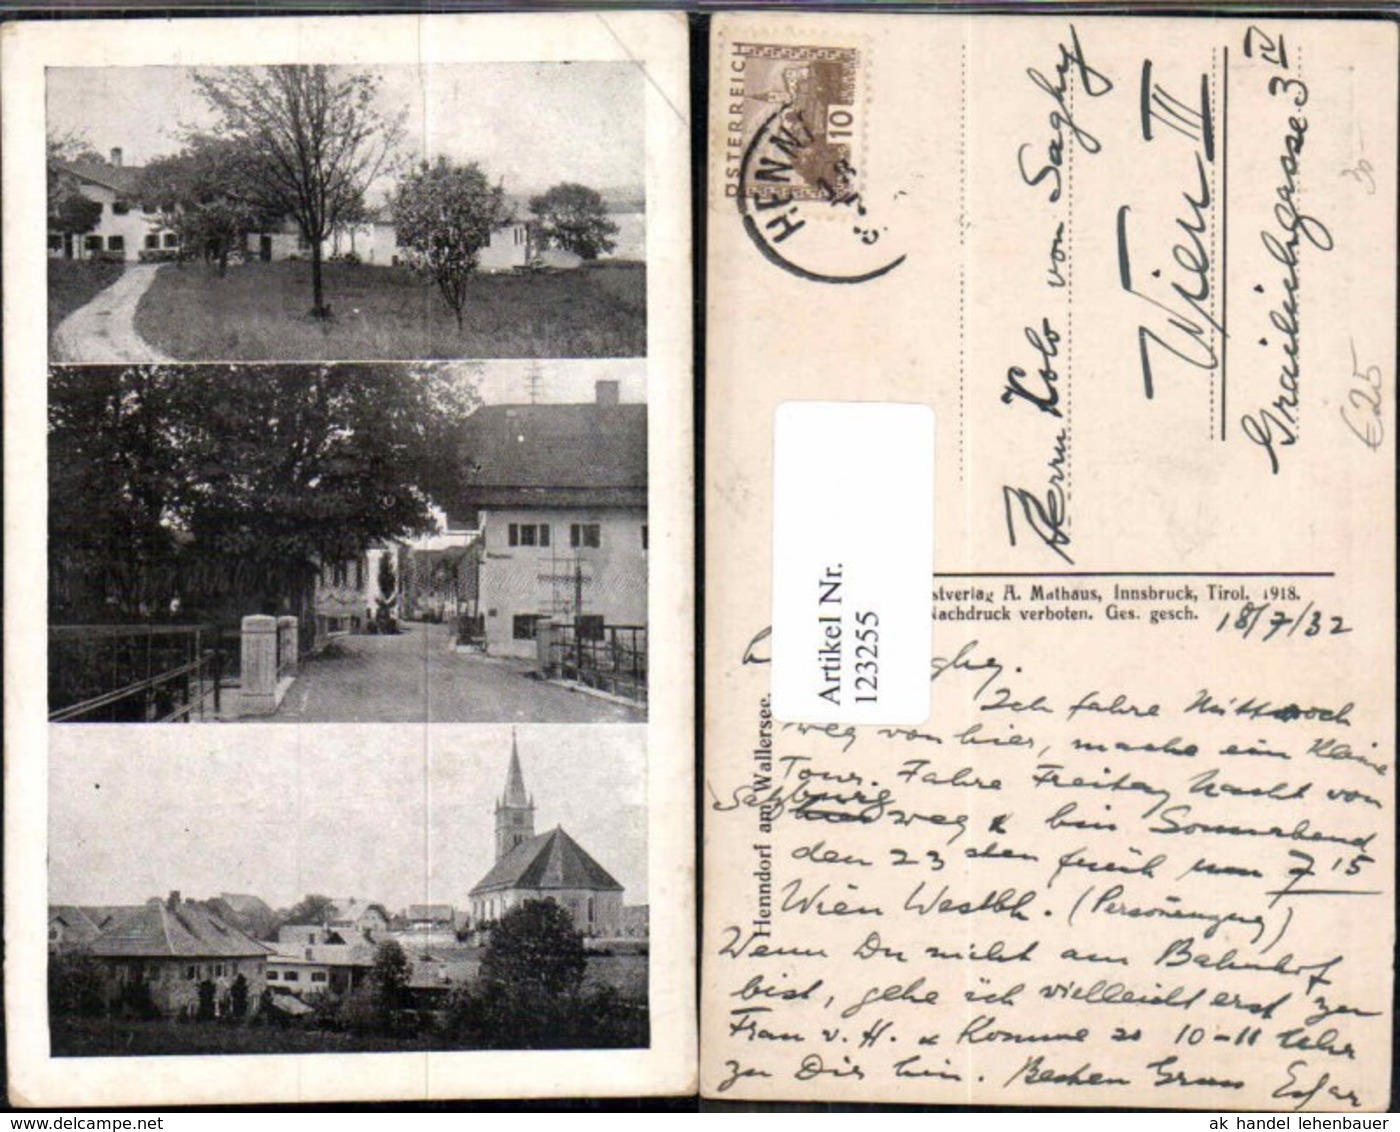 ÖSTERREICH
10
HENN
Herrn Kolo von Saghy
Wien III
Grailichgasse 3 IV
30-
€25
Artikel Nr.
123255
stverlag A. Mathaus, Innsbruck, Tirol. 1918.
Nachdruck verboten. Ges. gesch.
Henndorf am Wallersee.
18/7/32
Ich fahre Mittwoch
weg von hier, mache ein kleine
Tour. Fahre Freitag Nacht von
Salzburg weg & bin Sonnabend
den 23 sten früh um 7 15
Wien Westbh. (Personenzug)
Wenn Du nicht am Bahnhof
bist, gehe ich vielleicht erst zur
Frau v. H. & komme so 10-11 Uhr
zu Dir hin. Besten Gruss Edgar
ak handel lehenbauer